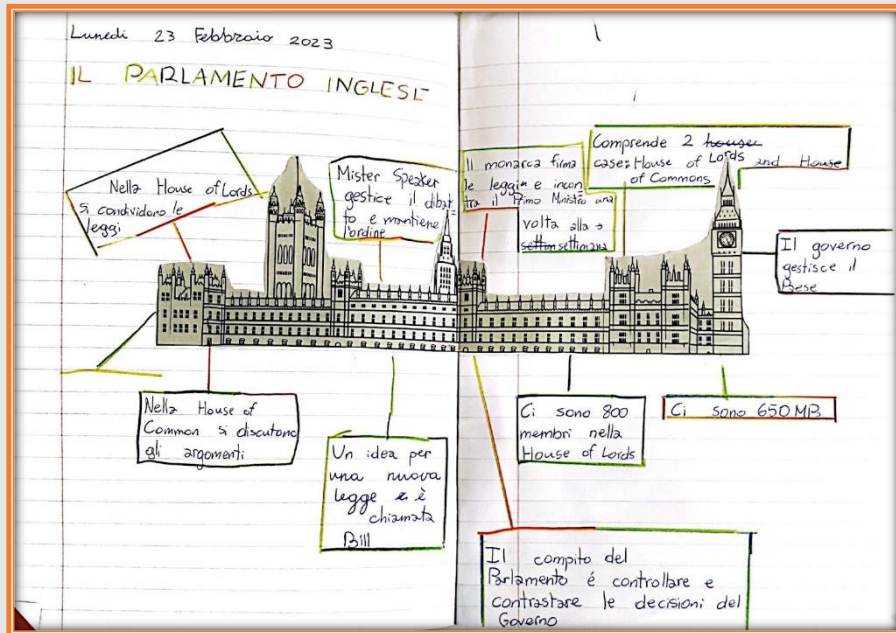 Lunedi 23 Febbraio 2023
IL PARLAMENTO INGLESE
Nella House of Lords
si condividono le
leggi
Mister Speaker
gestice il dibat
to e mantiene
l'ordine
Il monarca firma
le leggi e incon
tra il Primo Ministro una
volta alla →
settim settimana
Comprende 2 house
case: House of Lords and House
of Commons
Il governo
gestisce il
Paese
Nella House of
Common si discutono
gli argomenti
Un idea per
una nuova
legge e è
chiamata
Bill
Ci sono 800
membri nella
House of Lords
Ci sono 650 MPs
Il compito del
Parlamento é controllare e
contrastare le decisioni del
Governo